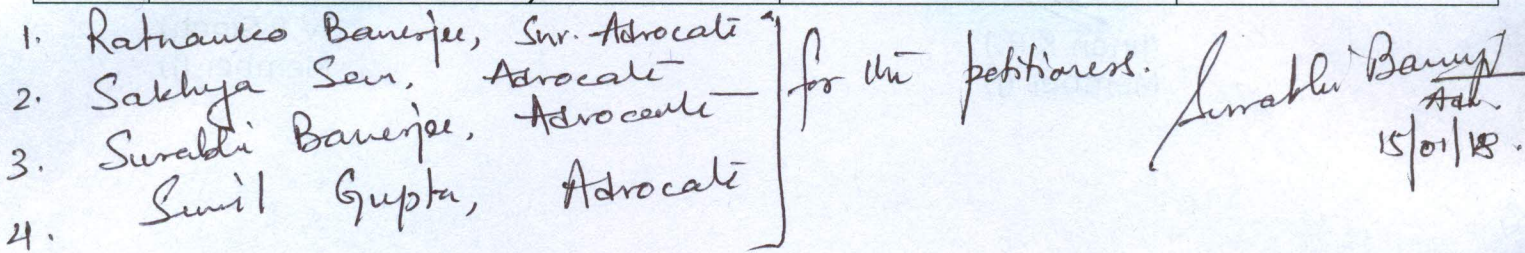 1. Ratnanko Banerjee, Snr. Advocate
2. Sakhya Sen, Advocate
3. Surabhi Banerjee, Advocate
4. Sunil Gupta, Advocate
for the petitioners.
Surabhi Banerjee
Adv.
15/01/18.